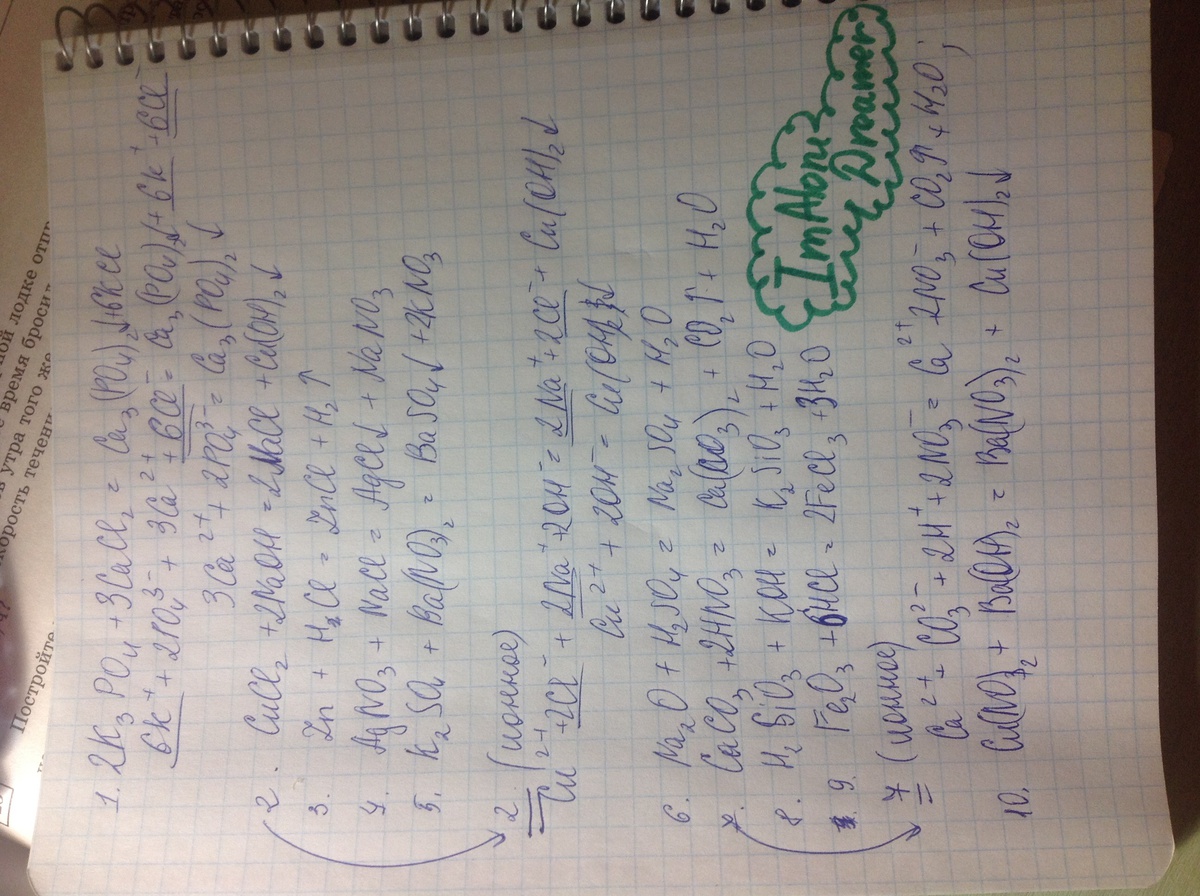 1. 2K₃PO₄ + 3CaCl₂ = Ca₃(PO₄)₂↓+6KCl
6K⁺ + 2PO₄³⁻ + 3Ca²⁺ + 6Cl⁻ = Ca₃(PO₄)₂↓ + 6K⁺ + 6Cl⁻
3Ca²⁺ + 2PO₄³⁻ = Ca₃(PO₄)₂↓
2. CuCl₂ + 2NaOH = 2NaCl + Cu(OH)₂↓
3. Zn + H₂Cl = ZnCl + H₂↑
4. AgNO₃ + NaCl = AgCl↓ + NaNO₃
5. K₂SO₄ + Ba(NO₃)₂ = BaSO₄↓ + 2KNO₃
2. (ионное)
Cu²⁺ + 2Cl⁻ + 2Na⁺ + 2OH⁻ = 2Na⁺ + 2Cl⁻ + Cu(OH)₂↓
Cu²⁺ + 2OH⁻ = Cu(OH)₂↓
6. Na₂O + H₂SO₄ = Na₂SO₄ + H₂O
7. CaCO₃ + 2HNO₃ = Ca(NO₃)₂ + CO₂↑ + H₂O
8. H₂SiO₃ + KOH = K₂SiO₃ + H₂O
9. Fe₂O₃ + 6HCl = 2FeCl₃ + 3H₂O
ImAlone
Dreamer
7 (ионное)
Ca²⁺ + CO₃²⁻ + 2H⁺ + 2NO₃⁻ = Ca²⁺ 2NO₃⁻ + CO₂↑ + H₂O;
10. Cu(NO₃)₂ + Ba(OH)₂ = Ba(NO₃)₂ + Cu(OH)₂↓
Постройте
корость течени
в утра того же
е время бросил
ной лодке отпр